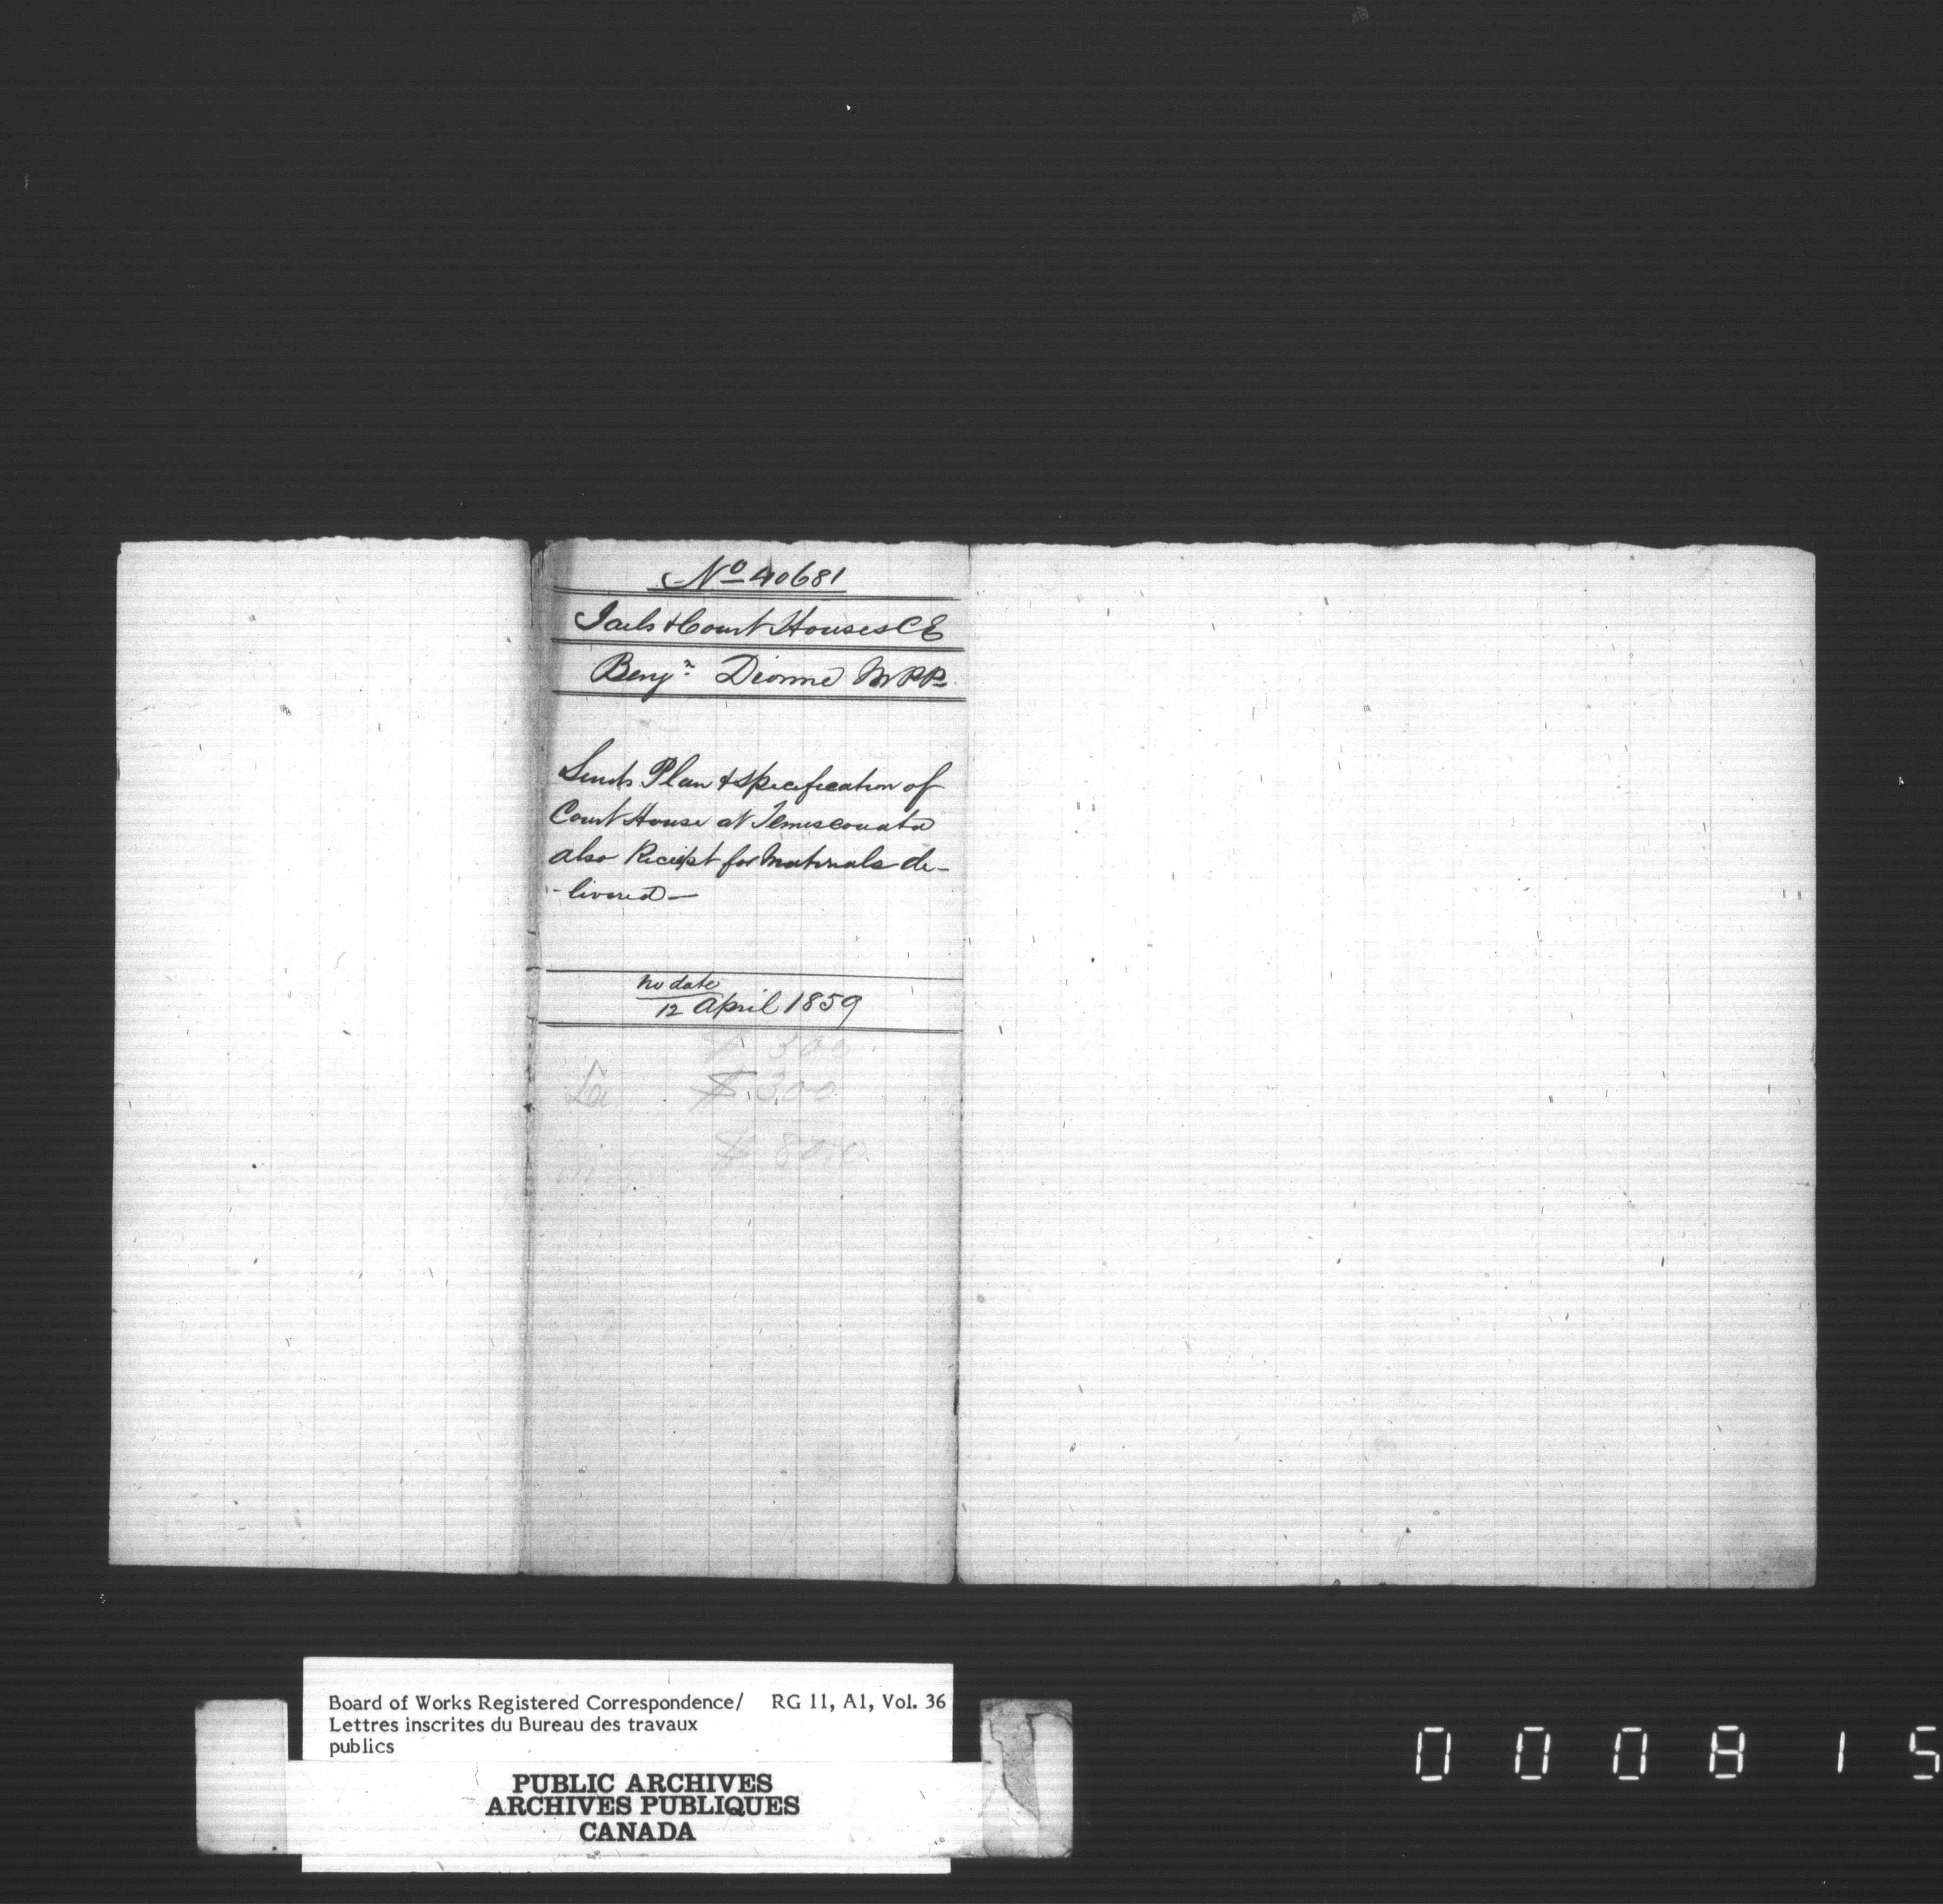 No 40681
Jails & Court Houses C E
Benjn Dionne M P P
Sends Plan & specification of
Court House at Temiscouata
also Receipt for Materials de-
-livered—
no date
12 April 1859
$ 300
$ 300
$ 800
Board of Works Registered Correspondence/ RG 11, A1, Vol. 36
Lettres inscrites du Bureau des travaux
publics
PUBLIC ARCHIVES
ARCHIVES PUBLIQUES
CANADA
000815